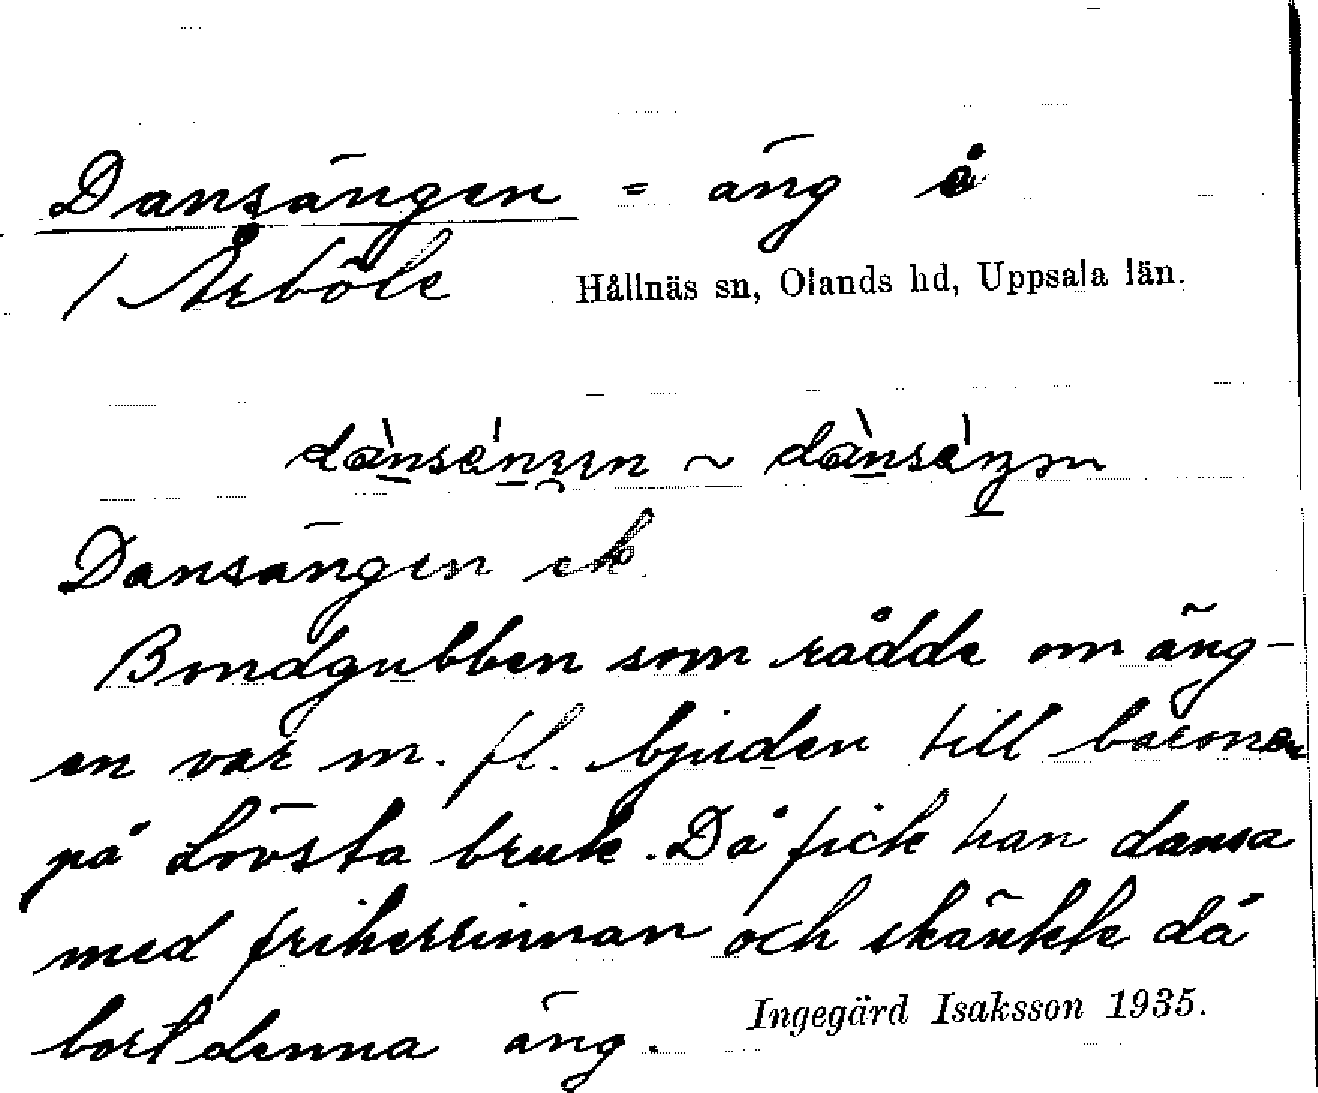 Dansängen = äng å
/ Årböle Hållnäs sn, Olands hd, Uppsala län.
Dansängen ek
Bondgubben som rådde om äng-
en var m. fl. bjuden till baronen
på Lövsta bruk. Då fick han dansa
med friherrinnan och skänkte då
bort denna äng.
Ingegärd Isaksson 1935.